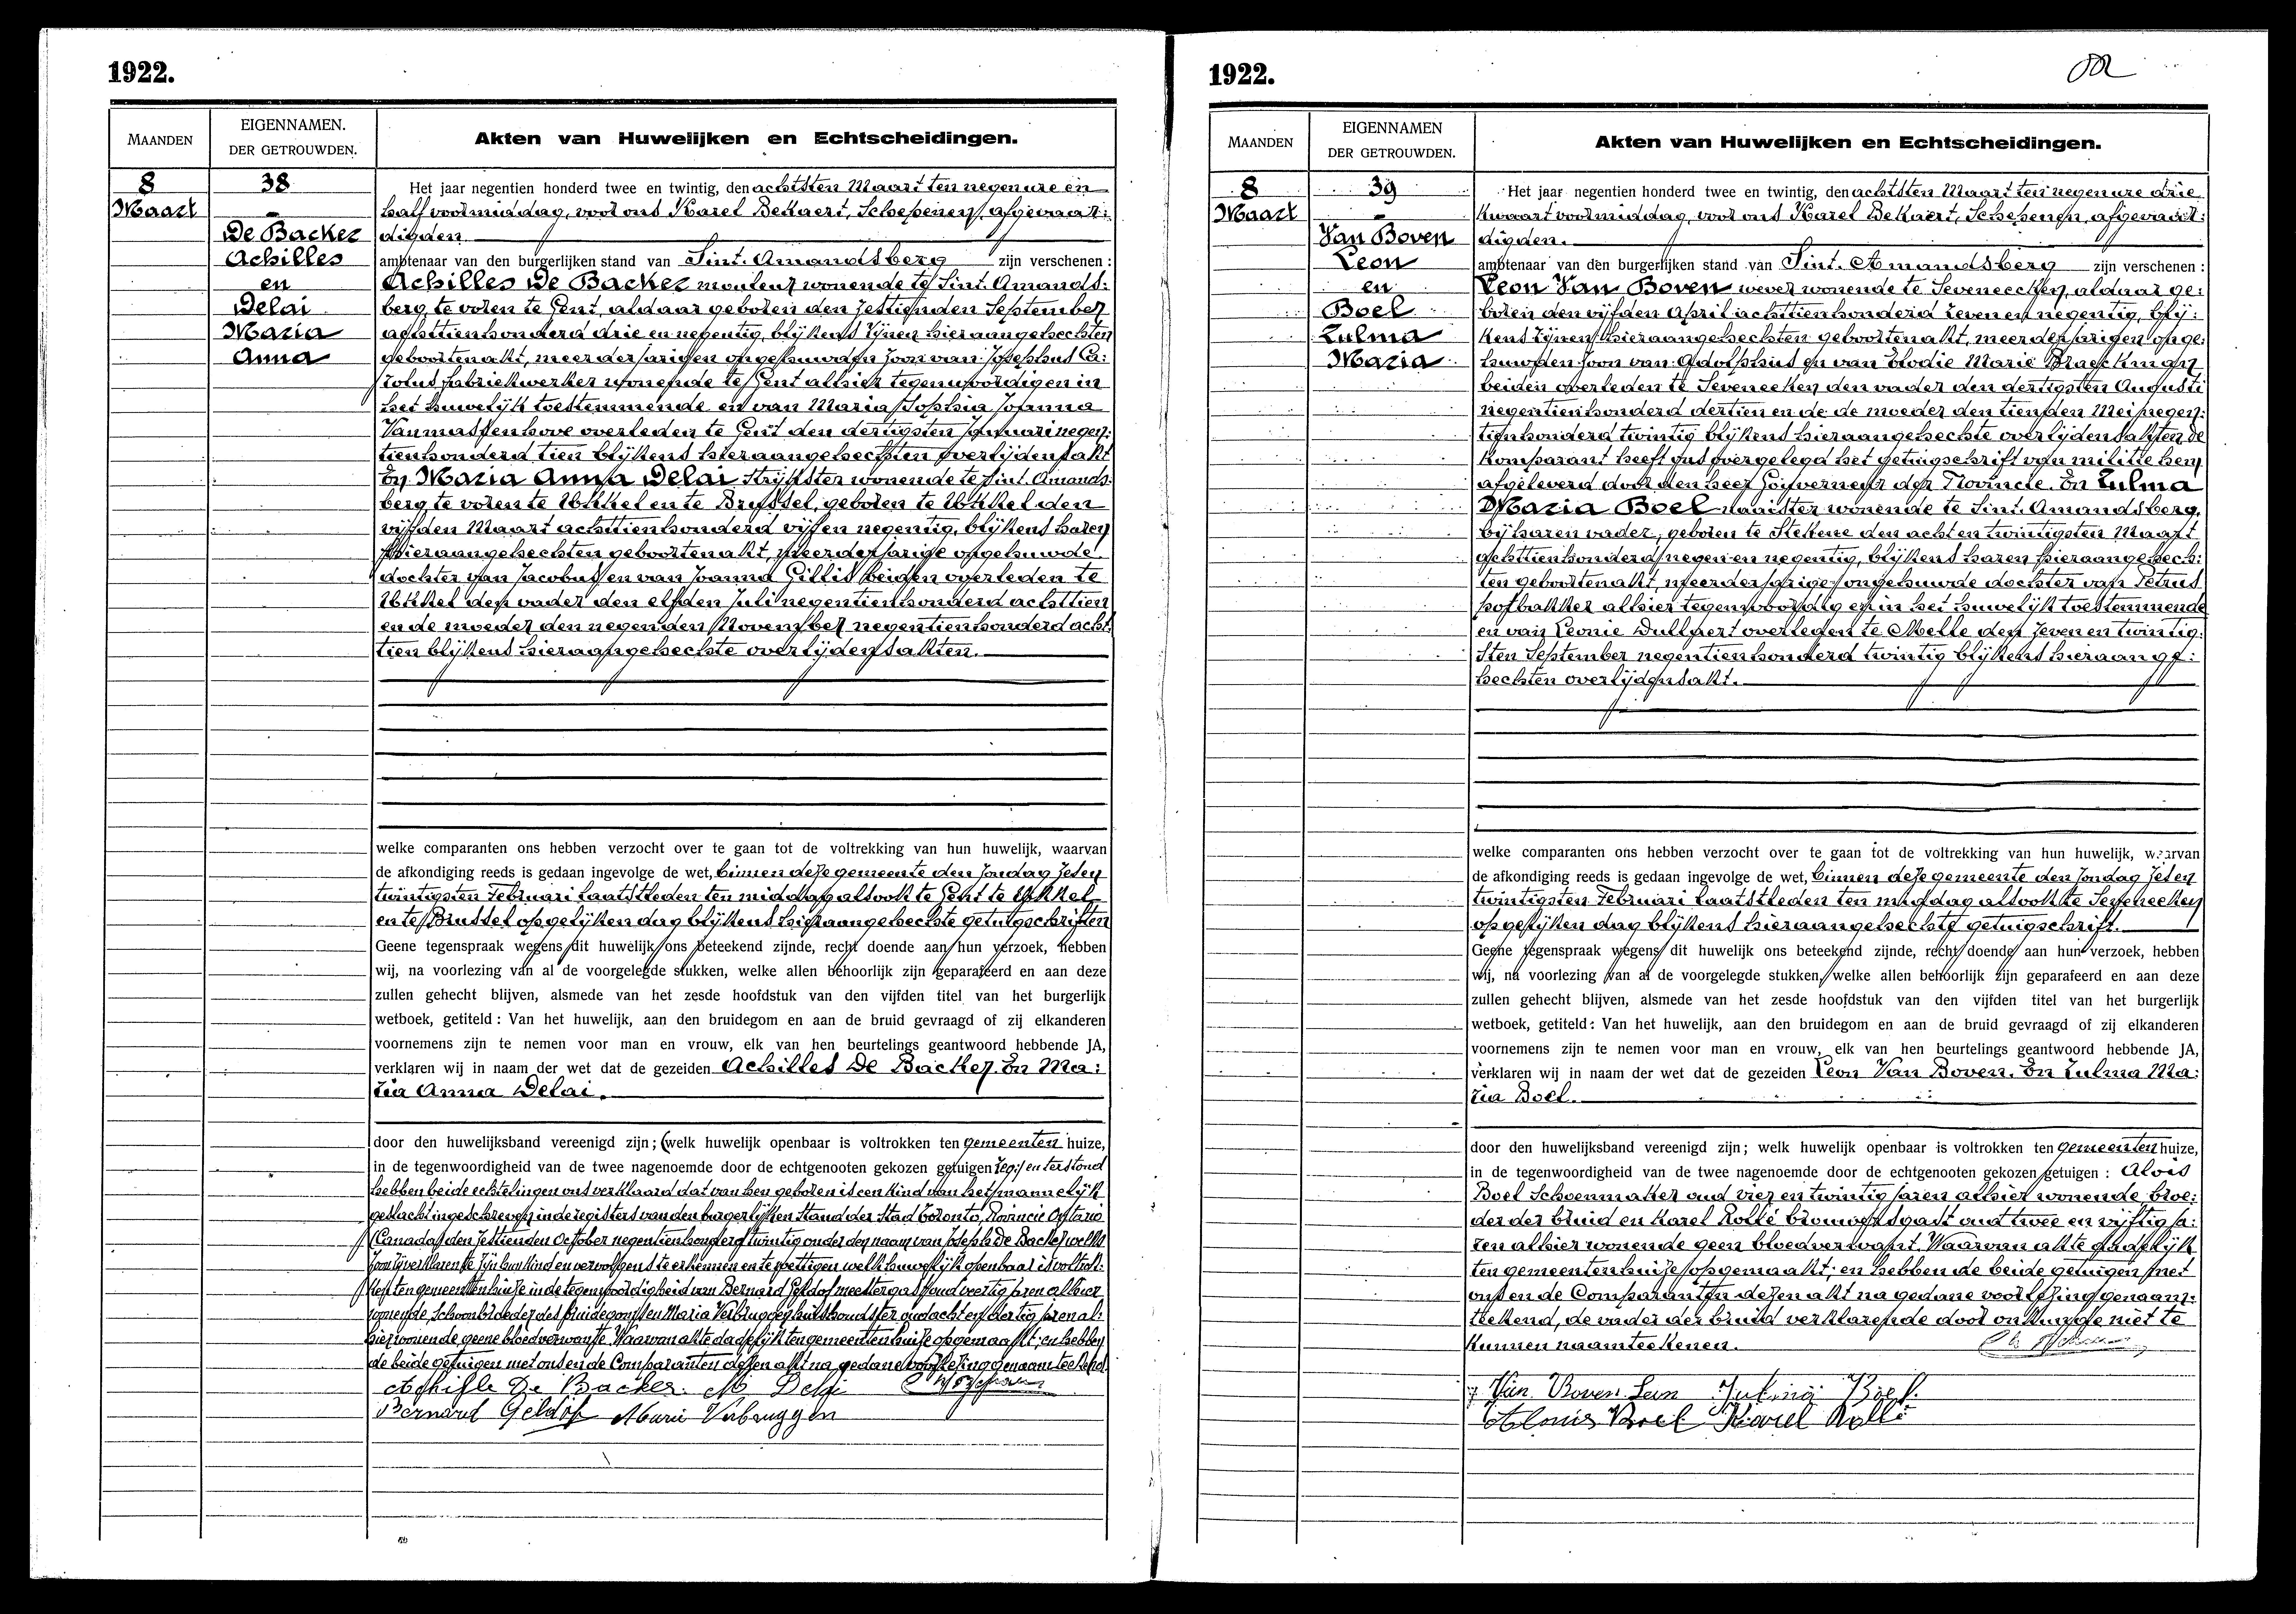 1922.
MAANDEN
EIGENNAMEN.
DER GETROUWDEN.
Akten van Huwelijken en Echtscheidingen.
8
Maart
38
De Backer
Achilles
en
Delai
Maria
Anna
Het jaar negentien honderd twee en twintig, den achtsten Maart ten negen ure en
half voormiddag, voor ons Karel Bekaert, Schepenen, afgevaar:
digden
ambtenaar van den burgerlijken stand van Sint. Amandsberg zijn verschenen :
Achilles De Backer mouleur wonende te Sint. Amands:
berg, te voren te Gent, aldaar geboren den zestienden September
achttienhonderd drie en negentig, blijkens zijnen hieraangehechten
geboortenakt, meerderjarigen ongehuwden zoon van Josephus Ca:
rolus fabriekwerker wonende te Gent alhier tegenwoordigen in
het huwelijk toestemmende en van Maria Sophia Joanna
Vanmassenhove overleden te Gent den dertigsten Januari negen:
tienhonderd tien blijkens hieraangehechten overlijdensakt
En Maria Anna Delai strijkster wonende te Sint. Amands:
berg te voren te Ukkel en te Brussel, geboren te Ukkel den
vijfden Maart achttienhonderd vijf en negentig, blijkens haren
hieraangehechten geboortenakt, meerderjarige ongehuwde
dochter van Jacobus en van Joanna Gillis beiden overleden te
Ukkel den vader den elfden Juli negentienhonderd achttien
en de moeder den negenden November negentienhonderd acht:
tien blijkens hieraangehechte overlijdensakten.
welke comparanten ons hebben verzocht over te gaan tot de voltrekking van hun huwelijk, waarvan
de afkondiging reeds is gedaan ingevolge de wet, binnen deze gemeente den zondag zesen
twintigsten Februari laatstleden ten middag alsook te Gent te Ukkel
en te Brussel op gelijken dag blijkens hieraangehechte getuigschriften
Geene tegenspraak wegens dit huwelijk ons beteekend zijnde, recht doende aan hun verzoek, hebben
wij, na voorlezing van al de voorgelegde stukken, welke allen behoorlijk zijn geparafeerd en aan deze
zullen gehecht blijven, alsmede van het zesde hoofdstuk van den vijfden titel van het burgerlijk
wetboek, getiteld : Van het huwelijk, aan den bruidegom en aan de bruid gevraagd of zij elkanderen
voornemens zijn te nemen voor man en vrouw, elk van hen beurtelings geantwoord hebbende JA,
verklaren wij in naam der wet dat de gezeiden Achilles De Backer. En Ma:
ria Anna Delai.
door den huwelijksband vereenigd zijn; (welk huwelijk openbaar is voltrokken ten gemeenten huize,
in de tegenwoordigheid van de twee nagenoemde door de echtgenooten gekozen getuigen en terstond
hebben beide echtelingen ons verklaard dat van hen geboren is een kind van het mannelijk
geslacht ingeschreven in de registers van den burgerlijken stand der Stad Toronto, Provincie Ontario
(Canada) den zestienden October negentienhonderd twintig onder den naam van Joseph De Backer welke
zoon zij verklaren te zijn hun kind en vervolgens te erkennen en te wettigen welk huwelijk openbaar is voltrok:
ken ten gemeentenhuize in de tegenwoordigheid van Bernard Geldof meestergast oud veertig jaren alhier
wonende, schoonbroeder des bruidegoms en Maria Verbruggen huishoudster oud acht en dertig jaren al:
hier wonende geene bloedverwante. Waarvan akte dadelijk ten gemeentenhuize opgemaakt; en hebben
de beide getuigen met ons en de Comparanten dezen akt na gedane voorlezing genaamteekend.
Achille De Backer. M Delai
Bernard Geldof Marie Verbruggen
1922.
MAANDEN
EIGENNAMEN
DER GETROUWDEN.
Akten van Huwelijken en Echtscheidingen.
8
Maart
39
Van Boven
Leon
en
Boel
Zulma
Maria
Het jaar negentien honderd twee en twintig, den achtsten Maart ten negen ure drie
kwaart voormiddag, voor ons Karel Bekaert, Schepenen, afgevaar:
digden.
ambtenaar van den burgerlijken stand van Sint. Amandsberg zijn verschenen :
Leon Van Boven wever wonende te Seveneecken, aldaar ge:
boren den vijfden April achttienhonderd zeven en negentig, blij:
kens zijnen hieraangehechten geboortenakt, meerderjarigen onge:
huwden zoon van Adolphus en van Elodie Marie Braeckman
beiden overleden te Seveneeken den vader den dertigsten Augusti
negentienhonderd dertien en de de moeder den tienden Mei negen:
tienhonderd twintig blijkens hieraangehechte overlijdensakten de
komparant heeft ons overgelegd het getuigschrift van militie hem
afgeleverd door den heer Gouverneur der Provincie. En Zulma
Maria Boel naaister wonende te Sint. Amandsberg,
bij haren vader, geboren te Stekene den acht en twintigsten Maart
achttienhonderd negen en negentig, blijkens haren hieraangehech:
ten geboortenakt, meerderjarige ongehuwde dochter van Petrus
potbakker alhier tegenwoordig en in het huwelijk toestemmende
en van Leonie Dullaert overleden te Melle den zeven en twintig:
sten September negentienhonderd twintig blijkens hieraange:
hechten overlijdensakt.
welke comparanten ons hebben verzocht over te gaan tot de voltrekking van hun huwelijk, waarvan
de afkondiging reeds is gedaan ingevolge de wet, binnen deze gemeente den zondag zesen
twintigsten Februari laatstleden ten middag alsook te Seveneeken
op gelijken dag blijkens hieraangehechte getuigschrift.
Geene tegenspraak wegens dit huwelijk ons beteekend zijnde, recht doende aan hun verzoek, hebben
wij, na voorlezing van al de voorgelegde stukken, welke allen behoorlijk zijn geparafeerd en aan deze
zullen gehecht blijven, alsmede van het zesde hoofdstuk van den vijfden titel van het burgerlijk
wetboek, getiteld : Van het huwelijk, aan den bruidegom en aan de bruid gevraagd of zij elkanderen
voornemens zijn te nemen voor man en vrouw, elk van hen beurtelings geantwoord hebbende JA,
verklaren wij in naam der wet dat de gezeiden Leon Van Boven. En Zulma Ma:
ria Boel.
door den huwelijksband vereenigd zijn; welk huwelijk openbaar is voltrokken ten gemeenten huize,
in de tegenwoordigheid van de twee nagenoemde door de echtgenooten gekozen getuigen : Alois
Boel Schoenmaker oud vier en twintig jaren alhier wonende, broe:
der der bruid en Karel Rollé brouwersgast oud twee en vijftig ja:
ren alhier wonende geen bloedverwant. Waarvan akte dadelijk
ten gemeentenhuize opgemaakt; en hebben de beide getuigen met
ons en de Comparanten dezen akt na gedane voorlezing genaam:
teekend, de vader der bruid verklarende door onkunde niet te
kunnen naamteekenen.
Van Boven Leon Zulma Boel.
Alouis Boel Karel Rollé